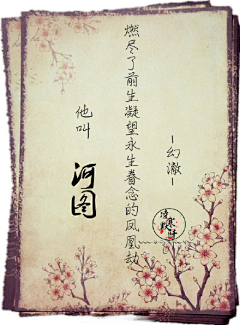 燃尽了前生凝望永生眷念的凤凰劫
他叫
河图
-幻澈-